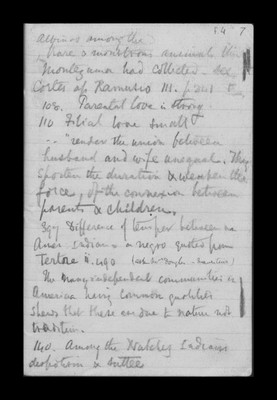 54 7
albinos among the
rare & monstrous animals that
Montezuma had collected – See
Cortes ap. Ramusio III. p. 241
108. Parental love is strong.
110 Filial love small
.. "render the union between
husband and wife unequal. They
shorten the duration & weaken the
force, of the connexion between
parents & children.
Difference of temper between
Amer. Indians & negro quoted from
Tertre ii. 490
The many independent communities in
America having common qualities
shews that these are due to nature not
tradition.
140. Among the Natchez Indians
despotism & suttee